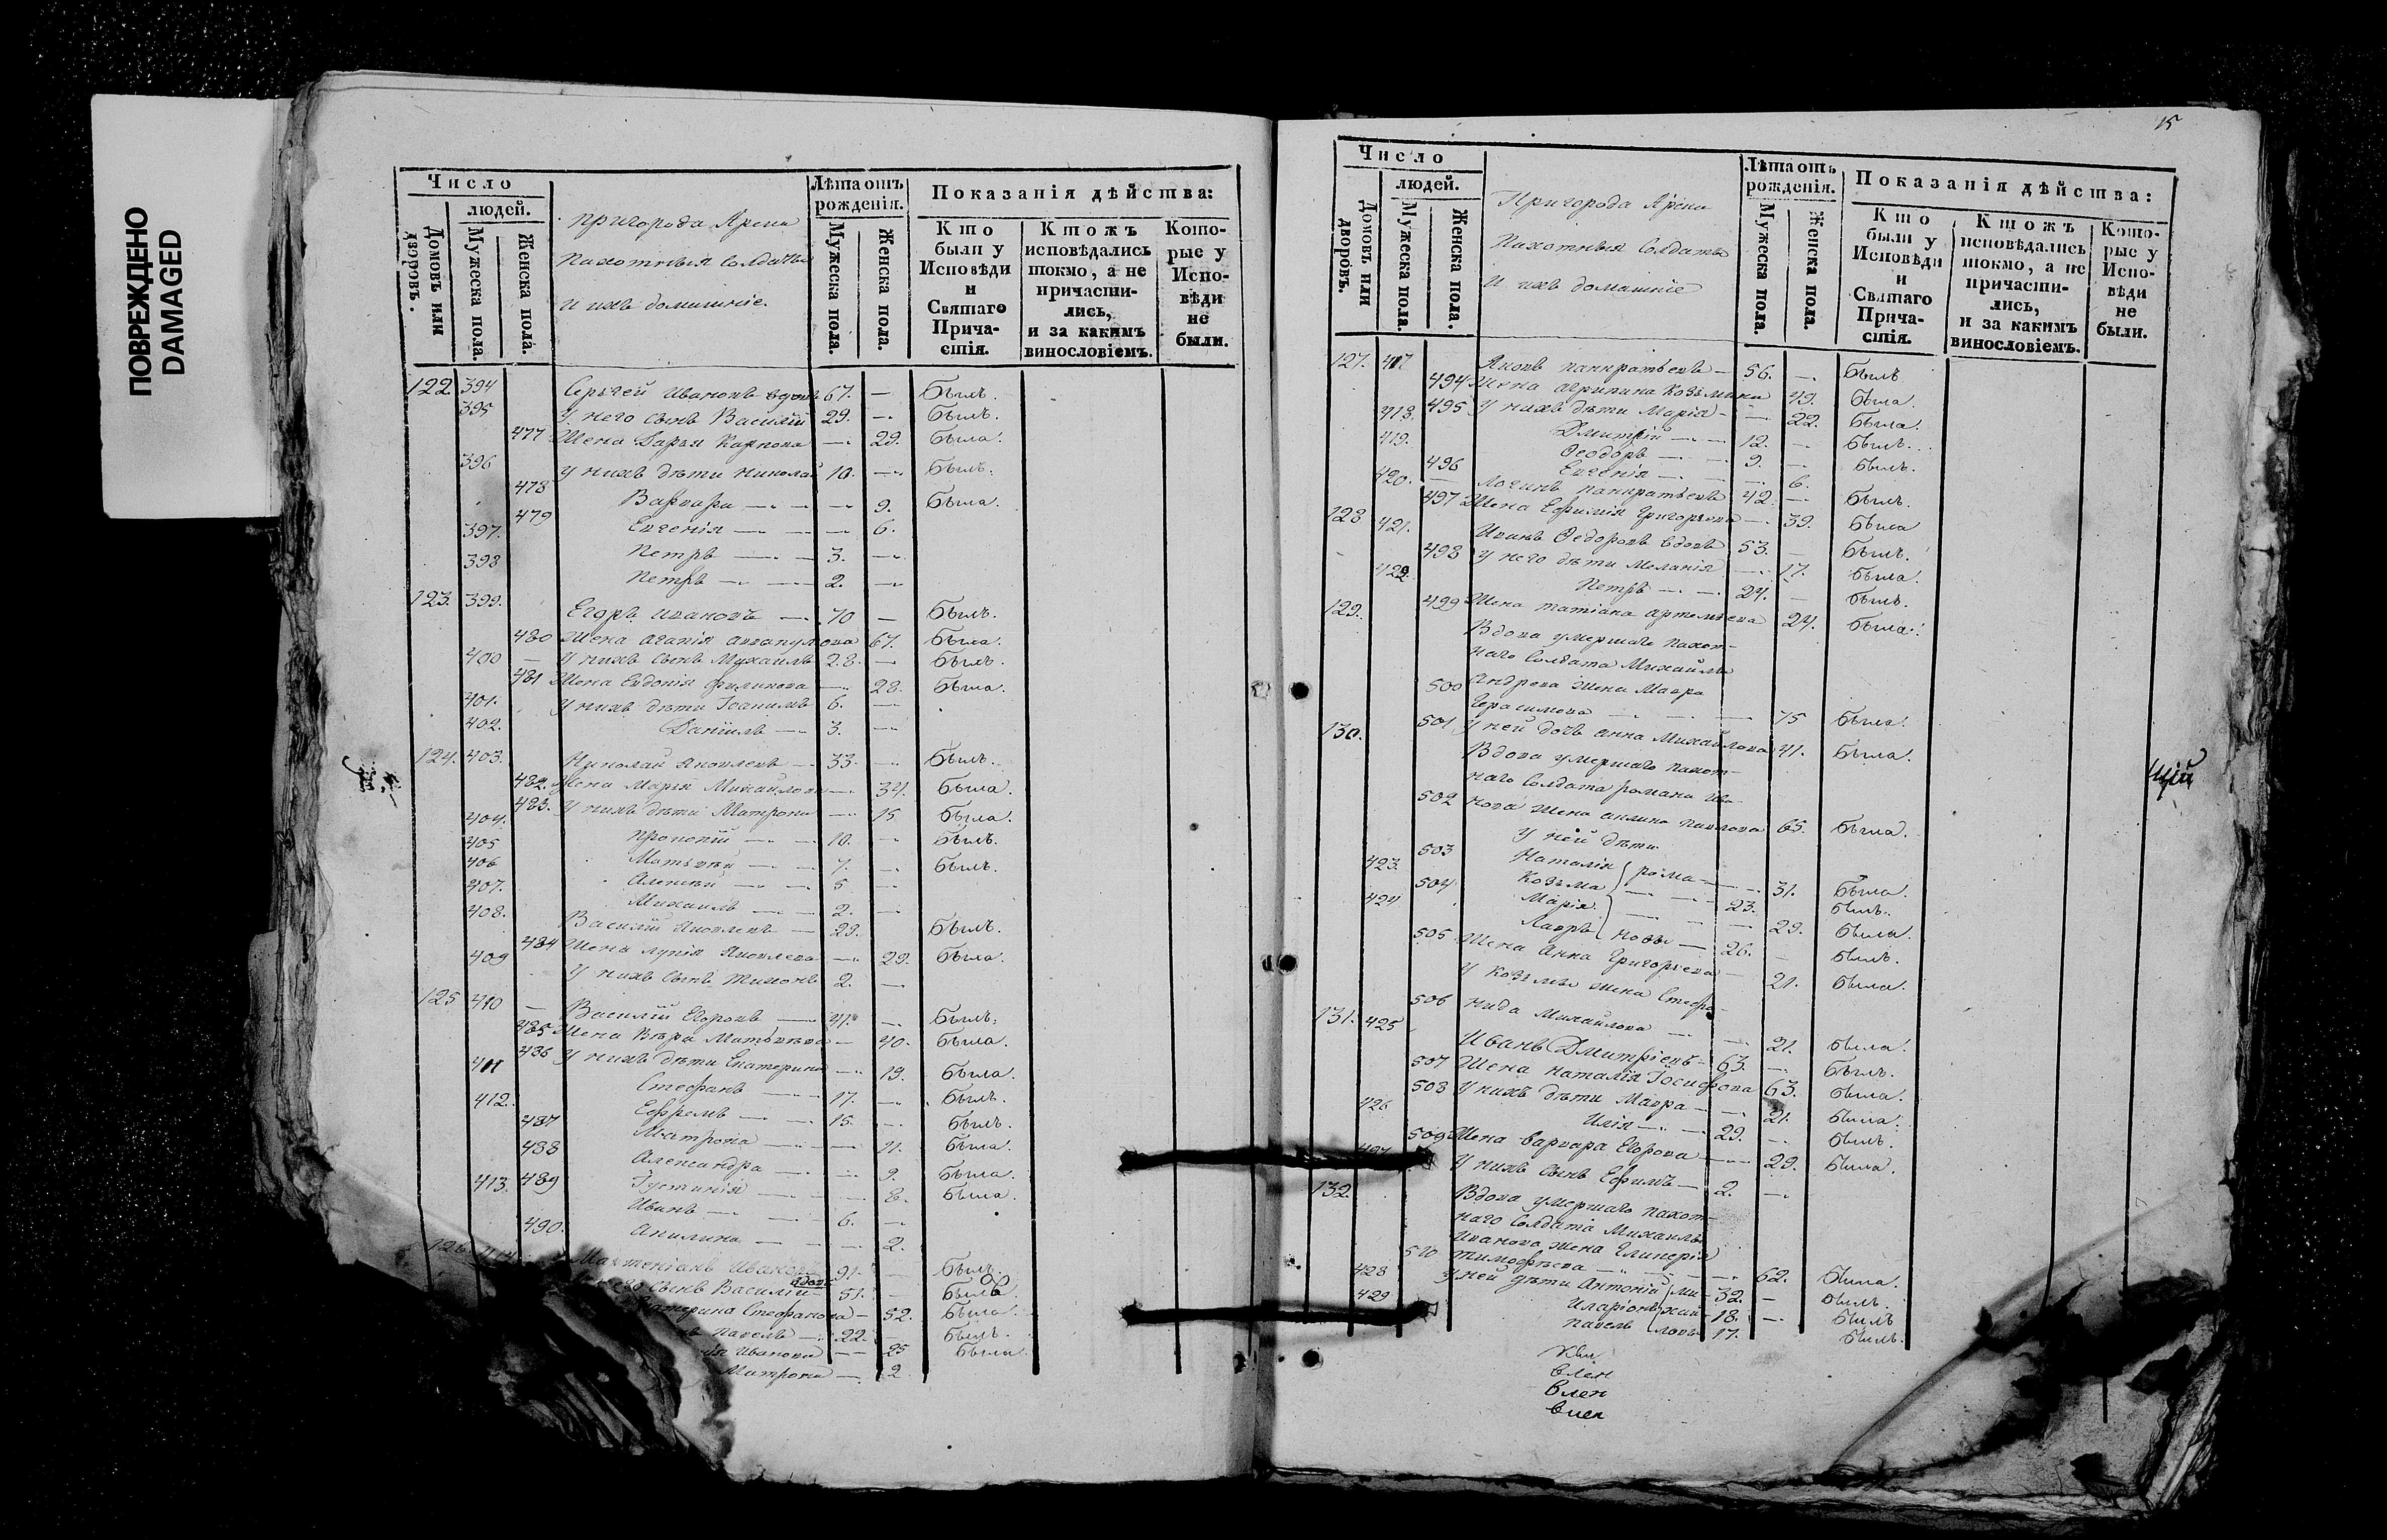 ПОВРЕЖДЕНО
DAMAGED
Число
людей.
Домовъ или дворовъ.
Мужеска пола.
Женска пола.
пригорода Арска
пахотныя Солдаты
и ихъ домашніе.
Лѣта отъ рожденія.
Мужеска пола.
Женска пола.
Показанія дѣйства:
Кто были у Исповѣди и Святаго Прича-стія.
Ктожъ исповѣдались токмо, а не причасти-лись, и за какимъ винословіемъ.
Кото-рые у Испо-вѣди не были.
122. 394 Сергѣй Ивановъ вдовъ 67. — Былъ.
395 У него сынъ Василій 29. — Былъ.
477 Жена Дарья Карпова — 29. Была.
396 У нихъ дѣти Николай 10. — Былъ.
478 Варвара — — 9. Была.
479 Евгенія — — 6.
397. Петръ — 3. —
398 Петръ — 2. —
123. 399. Егоръ Ивановъ — 70 — Былъ.
480 Жена Агапія 67. Была.
400 — У нихъ сынъ Михаилъ 28. — Былъ.
481 Жена Евдокія Филипова — 28. Была.
401. У нихъ дѣти Іоакимъ 6. —
402. Даніилъ — 3. —
124. 403. Николай Яковлевъ — 33. — Былъ.
482. Жена Марья Михайлова — 34. Была.
483. У нихъ дѣти Матрона — 15 Была.
404. Прокопій — 10. — Былъ.
405 Матвѣй — 7. — Былъ.
406 Алексѣй — 5 —
407. Михаилъ — 2. —
408. Василій Яковлевъ — 29. Былъ.
484 Жена Лукія Яковлева — 29. Была.
409 У нихъ сынъ Тихонъ 2. —
125 410 — Василій Егоровъ — 41. — Былъ.
485 Жена Вѣра Матвѣева — 40. Была.
486 У нихъ дѣти Екатерина — 19. Была.
411 Стефанъ — 17. — Былъ.
412. Ефремъ — 15. — Былъ.
487 Матрона — 11. Была.
488 Александра — 9. Была.
489 Іустинія — 8. Была.
413. Иванъ — 6. —
490. Акилина — — 2.
126 Иванов 91. — Былъ.
вдовъ
сынъ Василій 51. — Былъ.
Екатерина Стефанова — 52. Была.
Павелъ — 22. — Былъ.
Иванова — 25 Была
Матрона — 2
15
Число
людей.
Домовъ или дворовъ.
Мужеска пола.
Женска пола.
Пригорода Арска
Пахотныя Солдаты
И ихъ домашніе
Лѣта отъ рожденія.
Мужеска пола.
Женска пола.
Показанія дѣйства:
Кто были у Исповѣди и Святаго Прича-стія.
Ктожъ исповѣдались токмо, а не причасти-лись, и за какимъ винословіемъ.
Кото-рые у Испо-вѣди не были.
127. 417 Яковъ Панкратьевъ — 56. — Былъ
494 Жена Агрипина Козьмина 49. Была.
495 У нихъ дѣти Марія — — 22. Была.
418. Дмитрій — 12. — Былъ.
419. Ѳеодоръ — 9. — Былъ.
496 Евгенія — — 6.
420. — Логинъ Панкратьевъ 42 — Былъ.
497 Жена Ефимія Григорьева — 39. Была
128 421. Иванъ Ѳедоровъ вдовъ 53. — Былъ.
498 У него дѣти Меланія — 17. Была.
422. Петръ — 24. — Былъ.
499 Жена Татіана Артемьева 24. Была.
129. Вдова умершаго пахот-
наго Солдата Михайлы
500 Андрева Жена Мавра
Герасимова — — 75 Была.
501 У ней дочь Анна Михайлова 41. Была.
130. Вдова умершаго пахот-
наго Солдата Романа Ива-
502 нова Жена Акилина Павлова 65. Была.
У ней дѣти
503 Наталія рома — 31. Была.
423. Козьма — 23. Былъ.
504 Марія — 29. Была.
424 Лавръ новы — 26. — Былъ.
505 Жена Анна Григорьева — 21. Была.
У Козьмы жена Стефа-
506 нида Михайлова — 21. Была.
131. 425 Иванъ Дмитріевъ — 63. — Былъ.
507 Жена Наталія Іосифова 63. Была.
508 У нихъ дѣти Мавра — — 21. Была.
426 Илія — 29. — Былъ.
509 Жена Варвара Егорова — 29. Была.
427 У нихъ сынъ Ефимъ — 2. —
132. Вдова умершаго пахот-
наго Солдата Михаилы
Иванова жена Гликерія
510 Тимофѣева — — 62. Была.
428 У ней дѣти Антоній Ми- 32. — Былъ.
429 Иларіонъ хай- 18. — Былъ
Павелъ ловы 17. Былъ.
щій